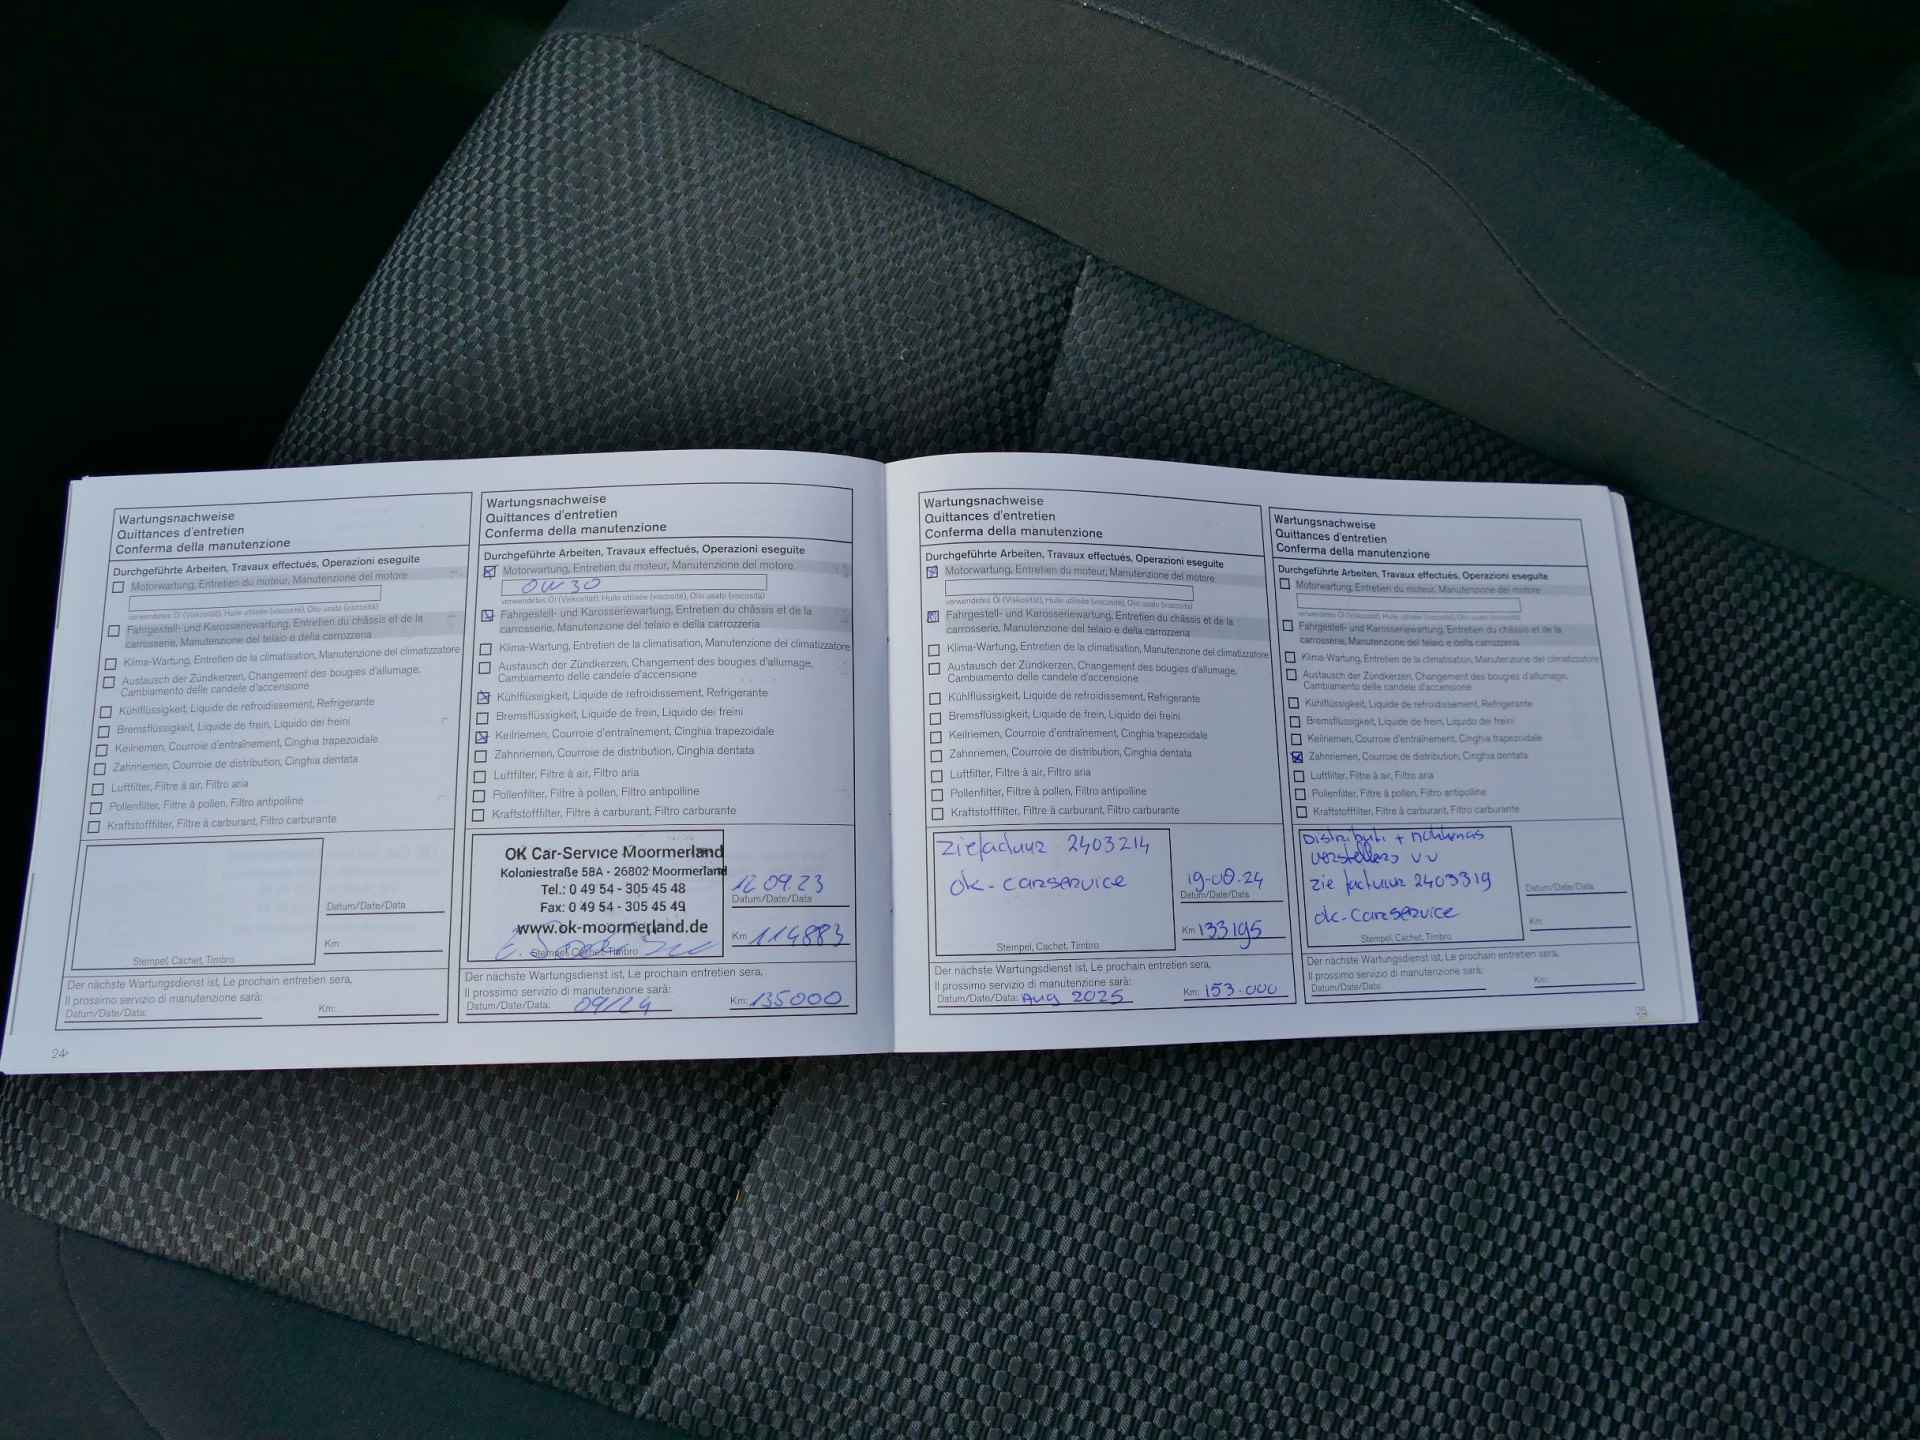 Wartungsnachweise
Quittances d'entretien
Conferma della manutenzione
Durchgeführte Arbeiten, Travaux effectués, Operazioni eseguite
Motorwartung, Entretien du moteur, Manutenzione del motore
verwendetes Öl (Viskosität), Huile utilisée (viscosité), Olio usato (viscosità)
Fahrgestell- und Karosseriewartung, Entretien du châssis et de la
carrosserie, Manutenzione del telaio e della carrozzeria
Klima-Wartung, Entretien de la climatisation, Manutenzione del climatizzatore
Austausch der Zündkerzen, Changement des bougies d'allumage,
Cambiamento delle candele d'accensione
Kühlflüssigkeit, Liquide de refroidissement, Refrigerante
Bremsflüssigkeit, Liquide de frein, Liquido dei freini
Keilriemen, Courroie d'entraînement, Cinghia trapezoidale
Zahnriemen, Courroie de distribution, Cinghia dentata
Luftfilter, Filtre à air, Filtro aria
Pollenfilter, Filtre à pollen, Filtro antipolline
Kraftstofffilter, Filtre à carburant, Filtro carburante
Datum/Date/Data
Km
Stempel, Cachet, Timbro
Der nächste Wartungsdienst ist, Le prochain entretien sera,
Il prossimo servizio di manutenzione sarà:
Datum/Date/Data:
Km:
24
Wartungsnachweise
Quittances d'entretien
Conferma della manutenzione
Durchgeführte Arbeiten, Travaux effectués, Operazioni eseguite
Motorwartung, Entretien du moteur, Manutenzione del motore
0W30
verwendetes Öl (Viskosität), Huile utilisée (viscosité), Olio usato (viscosità)
Fahrgestell- und Karosseriewartung, Entretien du châssis et de la
carrosserie, Manutenzione del telaio e della carrozzeria
Klima-Wartung, Entretien de la climatisation, Manutenzione del climatizzatore
Austausch der Zündkerzen, Changement des bougies d'allumage,
Cambiamento delle candele d'accensione
Kühlflüssigkeit, Liquide de refroidissement, Refrigerante
Bremsflüssigkeit, Liquide de frein, Liquido dei freini
Keilriemen, Courroie d'entraînement, Cinghia trapezoidale
Zahnriemen, Courroie de distribution, Cinghia dentata
Luftfilter, Filtre à air, Filtro aria
Pollenfilter, Filtre à pollen, Filtro antipolline
Kraftstofffilter, Filtre à carburant, Filtro carburante
OK Car-Service Moormerland
Koloniestraße 58A - 26802 Moormerland
Tel.: 0 49 54 - 305 45 48
Fax: 0 49 54 - 305 45 49
www.ok-moormerland.de
Stempel, Cachet, Timbro
12.09.23
Datum/Date/Data
Km 114883
Der nächste Wartungsdienst ist, Le prochain entretien sera,
Il prossimo servizio di manutenzione sarà:
Datum/Date/Data: 09/24
Km: 135000
Wartungsnachweise
Quittances d'entretien
Conferma della manutenzione
Durchgeführte Arbeiten, Travaux effectués, Operazioni eseguite
Motorwartung, Entretien du moteur, Manutenzione del motore
verwendetes Öl (Viskosität), Huile utilisée (viscosité), Olio usato (viscosità)
Fahrgestell- und Karosseriewartung, Entretien du châssis et de la
carrosserie, Manutenzione del telaio e della carrozzeria
Klima-Wartung, Entretien de la climatisation, Manutenzione del climatizzatore
Austausch der Zündkerzen, Changement des bougies d'allumage,
Cambiamento delle candele d'accensione
Kühlflüssigkeit, Liquide de refroidissement, Refrigerante
Bremsflüssigkeit, Liquide de frein, Liquido dei freini
Keilriemen, Courroie d'entraînement, Cinghia trapezoidale
Zahnriemen, Courroie de distribution, Cinghia dentata
Luftfilter, Filtre à air, Filtro aria
Pollenfilter, Filtre à pollen, Filtro antipolline
Kraftstofffilter, Filtre à carburant, Filtro carburante
zie factuur 2403214
ok-carservice
Stempel, Cachet, Timbro
19-08-24
Datum/Date/Data
Km 133195
Der nächste Wartungsdienst ist, Le prochain entretien sera,
Il prossimo servizio di manutenzione sarà:
Datum/Date/Data: Aug 2025
Km: 153.000
Wartungsnachweise
Quittances d'entretien
Conferma della manutenzione
Durchgeführte Arbeiten, Travaux effectués, Operazioni eseguite
Motorwartung, Entretien du moteur, Manutenzione del motore
verwendetes Öl (Viskosität), Huile utilisée (viscosité), Olio usato (viscosità)
Fahrgestell- und Karosseriewartung, Entretien du châssis et de la
carrosserie, Manutenzione del telaio e della carrozzeria
Klima-Wartung, Entretien de la climatisation, Manutenzione del climatizzatore
Austausch der Zündkerzen, Changement des bougies d'allumage,
Cambiamento delle candele d'accensione
Kühlflüssigkeit, Liquide de refroidissement, Refrigerante
Bremsflüssigkeit, Liquide de frein, Liquido dei freini
Keilriemen, Courroie d'entraînement, Cinghia trapezoidale
Zahnriemen, Courroie de distribution, Cinghia dentata
Luftfilter, Filtre à air, Filtro aria
Pollenfilter, Filtre à pollen, Filtro antipolline
Kraftstofffilter, Filtre à carburant, Filtro carburante
Distributi + nokkenas
verstellers vv
zie factuur 2403319
ok-carservice
Stempel, Cachet, Timbro
Datum/Date/Data
Km
Der nächste Wartungsdienst ist, Le prochain entretien sera,
Il prossimo servizio di manutenzione sarà:
Datum/Date/Data:
Km: